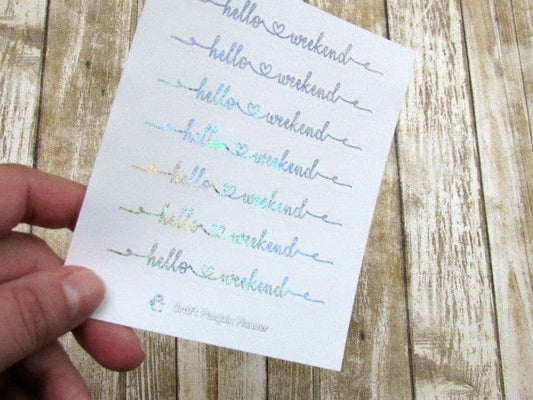 hello weekend
hello weekend
hello weekend
hello weekend
hello weekend
hello weekend
hello weekend
Craft Penguin Planner